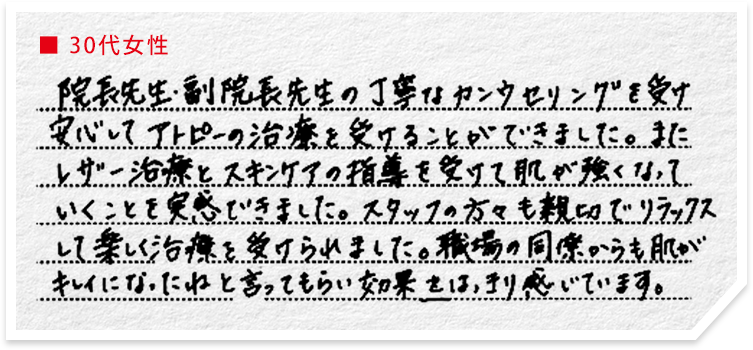 ■ 30代女性
院長先生・副院長先生の丁寧なカンウセリングを受け
安心してアトピーの治療を受けることができました。また
レザー治療とスキンケアの指導を受けて肌が強くなって
いくことを実感できました。スタッフの方々も親切でリラックス
して楽しく治療を受けられました。職場の同僚からも肌が
キレイになったねと言ってもらい効果をはっきり感じています。